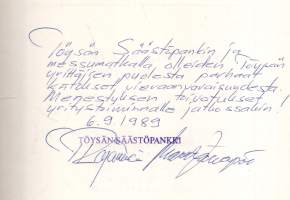 Töysän Säästöpankin ja
messumatkalla olleiden Töysän
yrittäjien puolesta parhaat
kiitokset vieraanvaraisuudesta.
Menestyksen toivotukset
yritystoiminnalle jatkossakin!
6.9.1989
TÖYSÄN SÄÄSTÖPANKKI